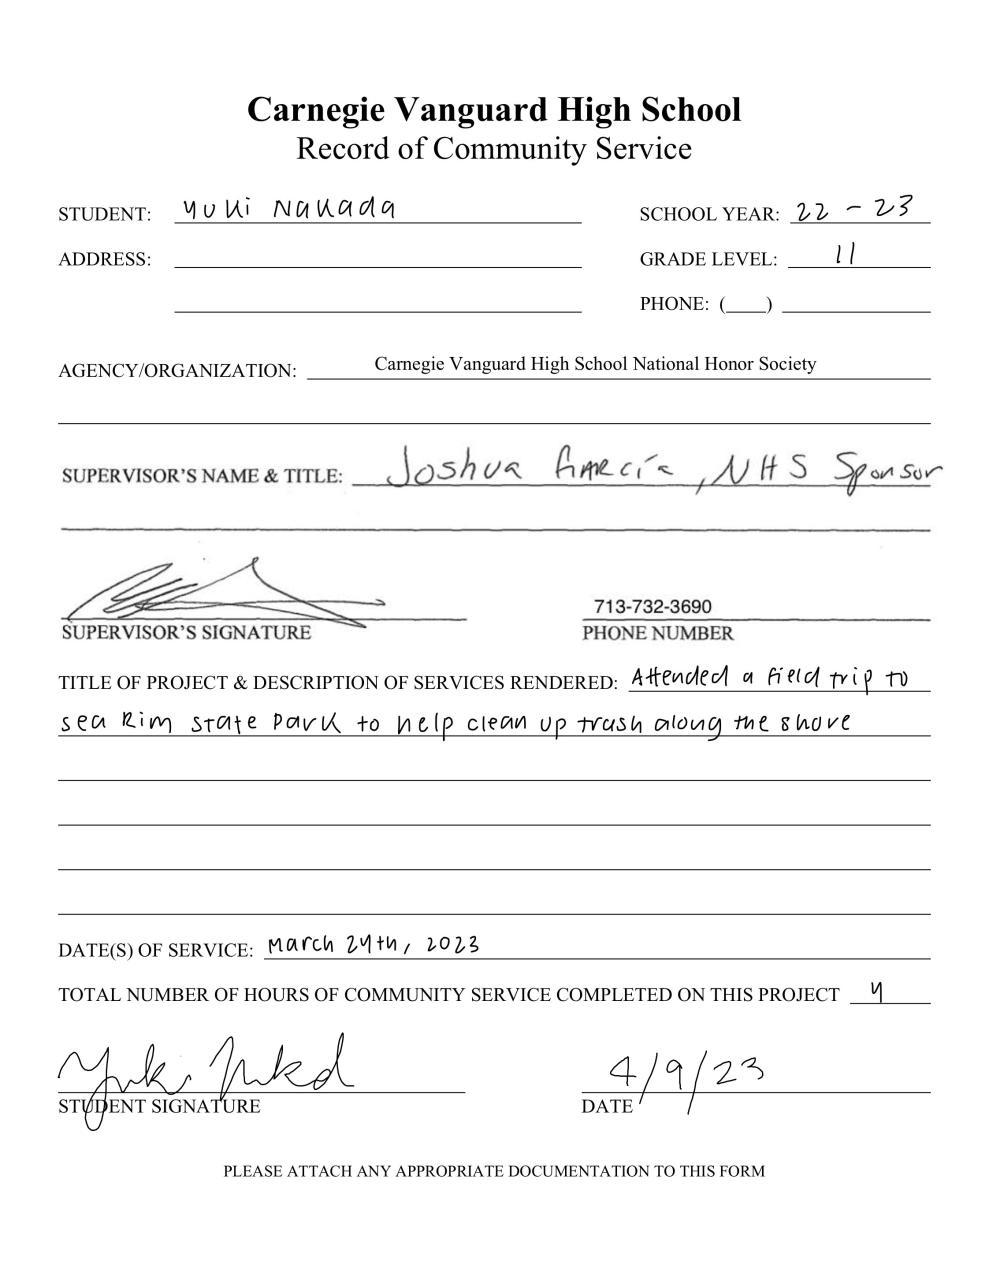 Carnegie Vanguard High School
Record of Community Service
STUDENT: Yuki Nakada SCHOOL YEAR: 22 - 23
ADDRESS: GRADE LEVEL: 11
PHONE: (___)
AGENCY/ORGANIZATION: Carnegie Vanguard High School National Honor Society
SUPERVISOR'S NAME & TITLE: Joshua Garcia, NHS Sponsor
713-732-3690
SUPERVISOR'S SIGNATURE PHONE NUMBER
TITLE OF PROJECT & DESCRIPTION OF SERVICES RENDERED: Attended a field trip to
sea Rim State Park to help clean up trash along the shore
DATE(S) OF SERVICE: March 24th, 2023
TOTAL NUMBER OF HOURS OF COMMUNITY SERVICE COMPLETED ON THIS PROJECT 4
4/9/23
STUDENT SIGNATURE DATE
PLEASE ATTACH ANY APPROPRIATE DOCUMENTATION TO THIS FORM